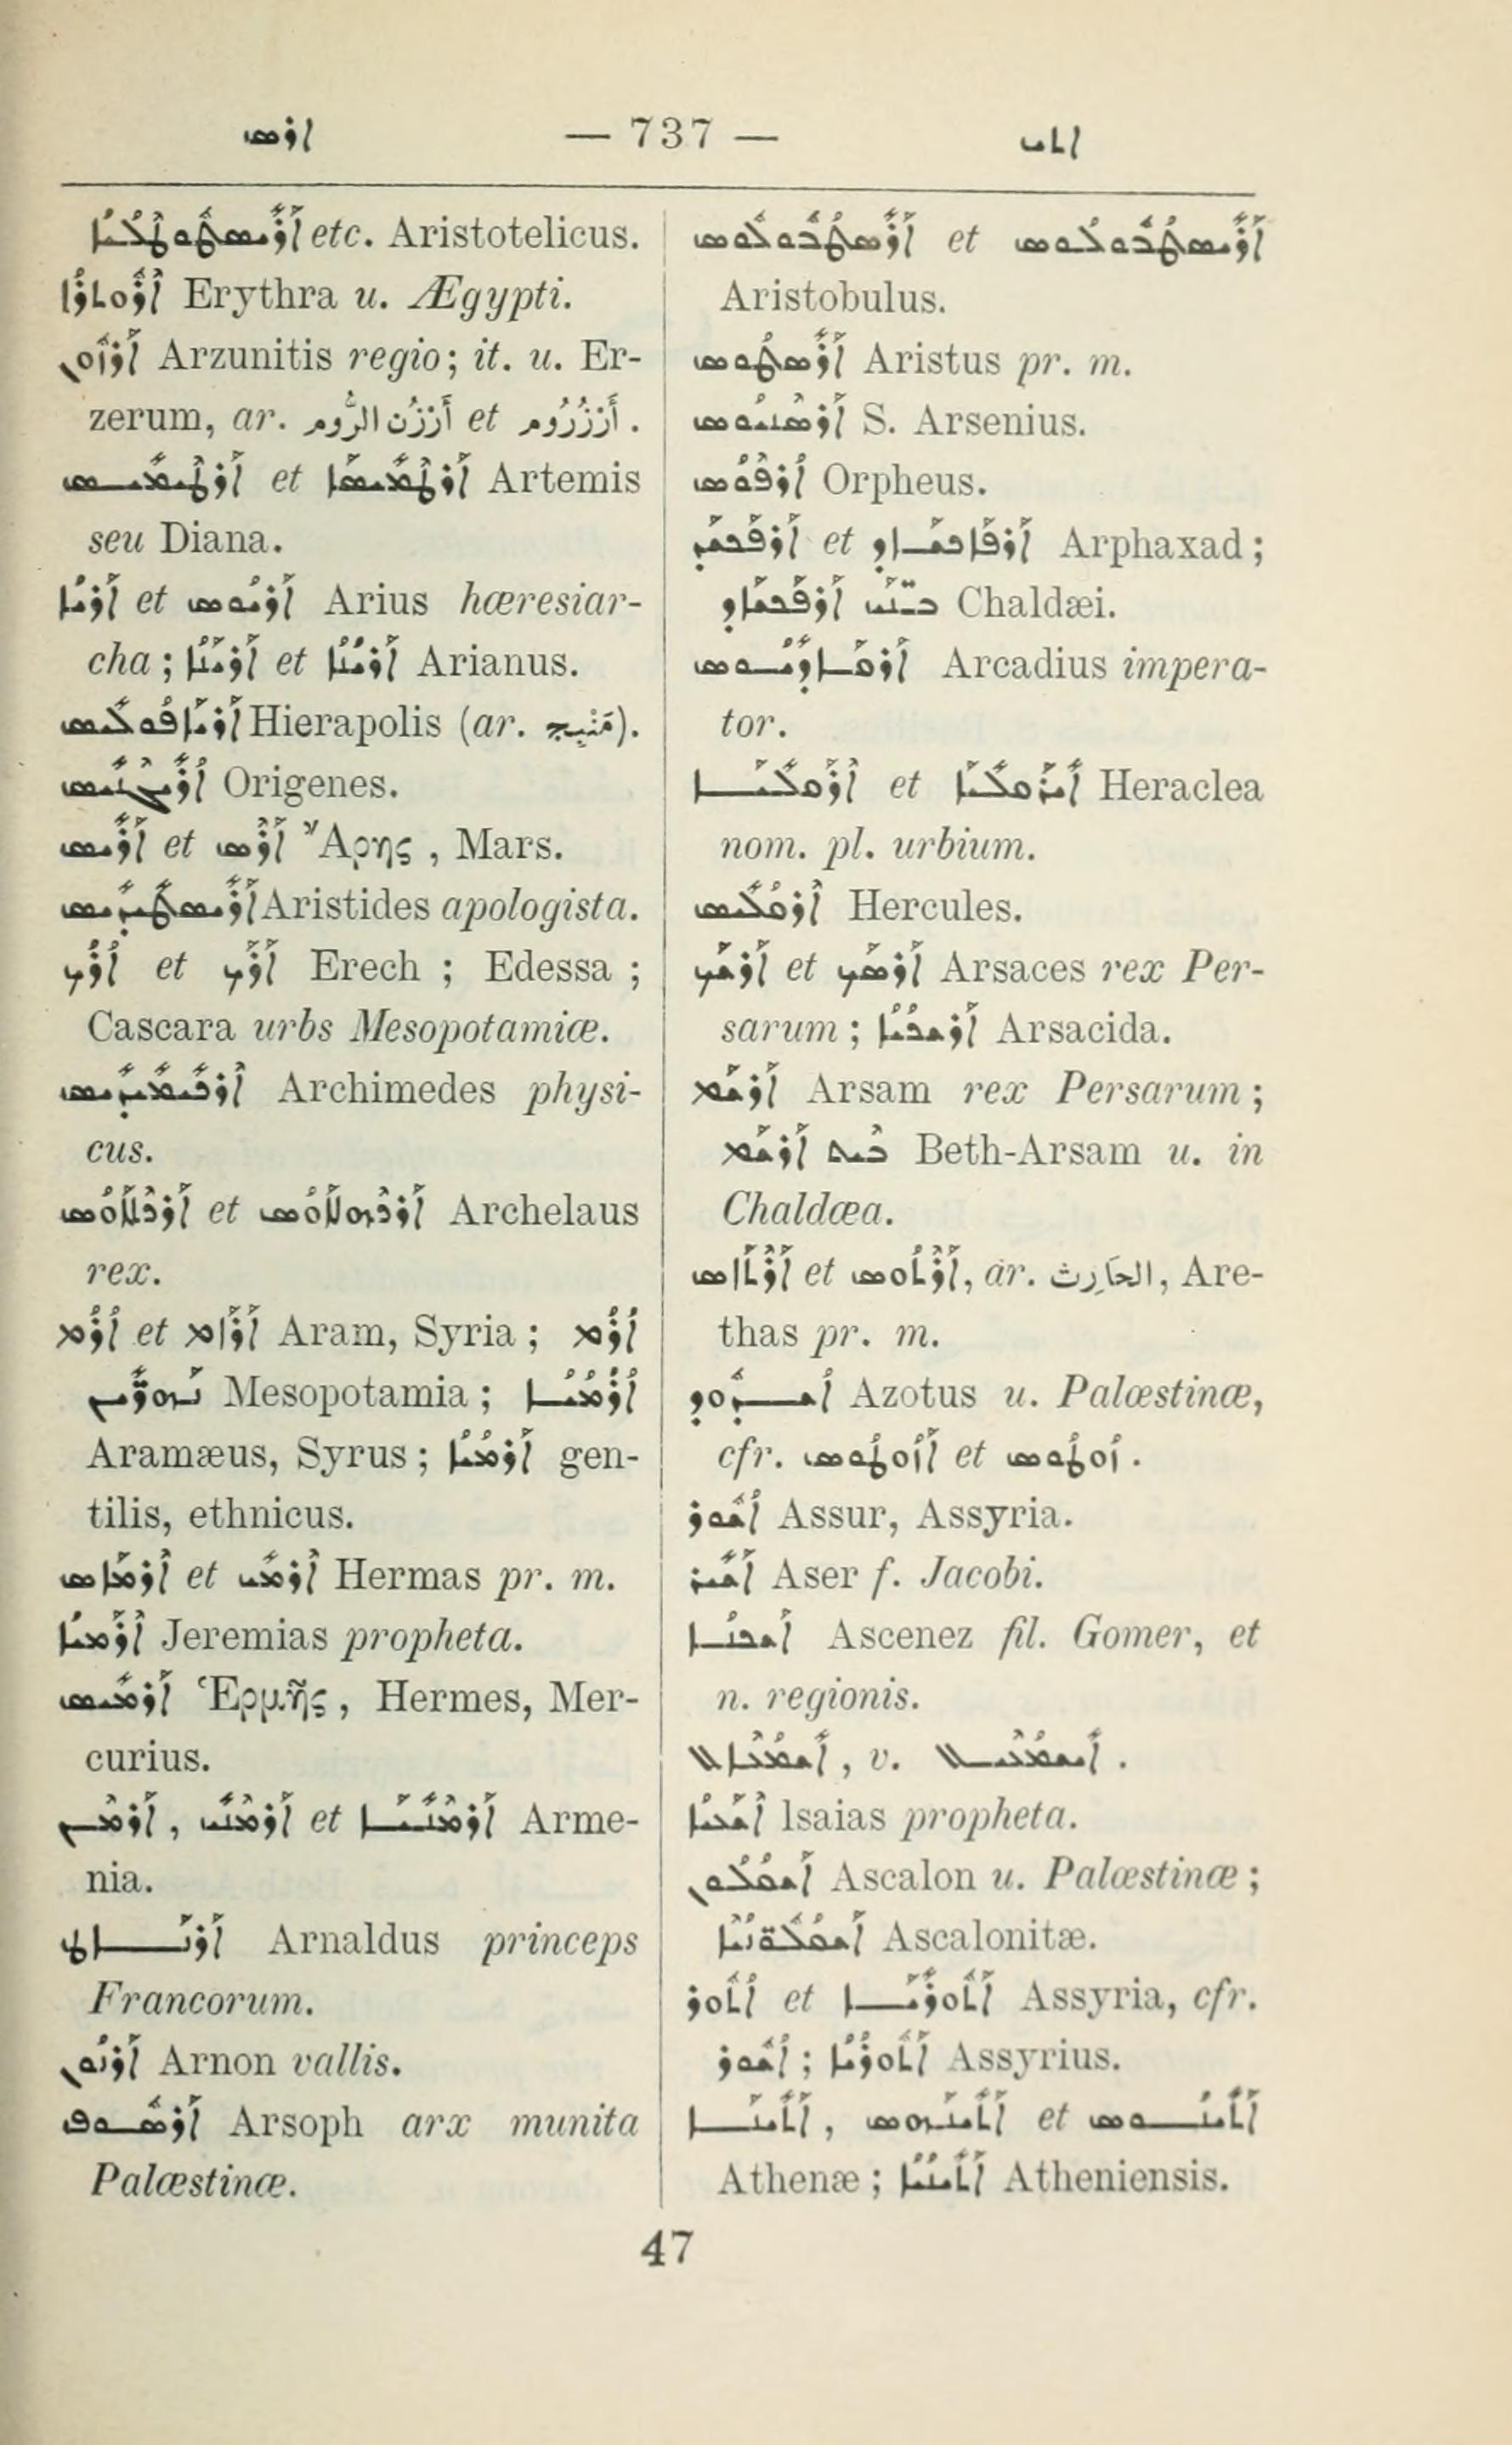 ܐܪܣ — 737 — ܐܬܝ
ܐܪܝܣܛܘܛܠܝܐ etc. Aristotelicus.
ܐܪܘܬܪܐ Erythra u. Ægypti.
ܐܪܙܘܢ Arzunitis regio; it. u. Er-
zerum, ar. أَرْزُن الرُّوم et أَرْزُرُوم .
ܐܪܛܝܡܝܣ et ܐܪܛܡܝܣܐ Artemis
seu Diana.
ܐܪܝܐ et ܐܪܝܘܣ Arius hæresiar-
cha ; ܐܪܝܢܐ et ܐܪܝܢܐ Arianus.
ܐܪܝܐܦܘܠܝܣ Hierapolis (ar. مَنْبِج).
ܐܪܝܓܢܝܣ Origenes.
ܐܪܝܣ et ܐܪܣ Ἄρης , Mars.
ܐܪܝܣܛܝܕܝܣ Aristides apologista.
ܐܪܟ et ܐܪܟ Erech ; Edessa ;
Cascara urbs Mesopotamiæ.
ܐܪܟܝܡܝܕܝܣ Archimedes physi-
cus.
ܐܪܟܠܐܘܣ et ܐܪܟܗܠܐܘܣ Archelaus
rex.
ܐܪܡ et ܐܪܐܡ Aram, Syria ; ܐܪܡ
ܢܗܪ̈ܝܢ Mesopotamia ; ܐܪܡܝܐ
Aramæus, Syrus ; ܐܪܡܝܐ gen-
tilis, ethnicus.
ܐܪܡܐܣ et ܐܪܡܝ Hermas pr. m.
ܐܪܡܝܐ Jeremias propheta.
ܐܪܡܝܣ Ἑρμῆς , Hermes, Mer-
curius.
ܐܪܡܢ , ܐܪܡܢܝ et ܐܪܡܢܝܐ Arme-
nia.
ܐܪܢܐܛ Arnaldus princeps
Francorum.
ܐܪܢܘܢ Arnon vallis.
ܐܪܣܘܦ Arsoph arx munita
Palæstinæ.
ܐܪܣܛܒܘܠܘܣ et ܐܪܝܣܛܒܘܠܘܣ
Aristobulus.
ܐܪܣܛܘܣ Aristus pr. m.
ܐܪܣܢܝܘܣ S. Arsenius.
ܐܪܦܘܣ Orpheus.
ܐܪܦܟܫܕ et ܐܪܦܐܟܫܐܕ Arphaxad ;
ܒܢ̈ܝ ܐܪܦܟܫܐܕ Chaldæi.
ܐܪܩܐܕܝܘܣ Arcadius impera-
tor.
ܐܪܩܠܝܐ et ܐܝܪܩܠܝܐ Heraclea
nom. pl. urbium.
ܐܪܩܠܝܣ Hercules.
ܐܪܫܟ et ܐܪܣܟ Arsaces rex Per-
sarum ; ܐܪܫܟܝܐ Arsacida.
ܐܪܫܡ Arsam rex Persarum ;
ܒܝܬ ܐܪܫܡ Beth-Arsam u. in
Chaldæa.
ܐܪܬܐܣ et ܐܪܬܘܣ, ar. الحَارِث, Are-
thas pr. m.
ܐܫܕܘܕ Azotus u. Palæstinæ,
cfr. ܐܙܘܛܘܣ et ܙܘܛܘܣ .
ܐܫܘܪ Assur, Assyria.
ܐܫܝܪ Aser f. Jacobi.
ܐܫܟܢܐ Ascenez fil. Gomer, et
n. regionis.
ܐܫܡܥܐܠ , v. ܐܝܫܡܥܝܠ .
ܐܫܥܝܐ Isaias propheta.
ܐܫܩܠܘܢ Ascalon u. Palæstinæ ;
ܐܫܩܠܘ̈ܢܝܐ Ascalonitæ.
ܐܬܘܪ et ܐܬܘܪܝܐ Assyria, cfr.
ܐܫܘܪ ; ܐܬܘܪܝܐ Assyrius.
ܐܬܝܢܐ , ܐܬܝܢܗܣ et ܐܬܝܢܘܣ
Athenæ ; ܐܬܝܢܝܐ Atheniensis.
47